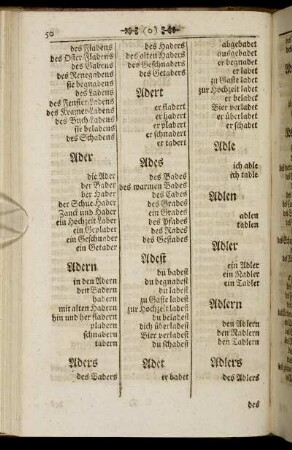 50
(o)
des Fladens
des Oster-Fladens
des Gadens
des Renegadens
sie begnadens
des Ladens
des Fenster-Ladens
des Kramer-Ladens
des Buch-Ladens
sie beladens
des Schadens
Ader
die Ader
der Bader
der Hader
der Schue-Hader
Zanck und Hader
ein Hochzeit-lader
ein Geplader
ein Geschnader
ein Getader
Adern
in den Adern
den Badern
hadern
mit alten Hadern
hin und her fladern
pladern
schnadern
tadern
Aders
des Baders
des Haders
des alten Haders
des Geschnaders
des Getaders
Adert
er fladert
er hadert
er pladert
er schnadert
er tadert
Ades
des Bades
des warmen Bades
des Cades
des Grades
ein Grades
des Pfades
des Rades
des Gestades
Adest
du badest
du begnadest
du ladest
zu Gaste ladest
zur Hochzeit ladest
du beladest
dich überladest
Bier verladest
du schadest
Adet
er badet
abgebadet
ausgebadet
er begnadet
er ladet
zu Gaste ladet
zur Hochzeit ladet
er beladet
Bier verladet
er überladet
er schadet
Adle
ich adle
ich tadle
Adlen
adlen
tadlen
Adler
ein Adler
ein Nadler
ein Tadler
Adlern
den Adlern
den Nadlern
den Tadlern
Adlers
des Adlers
des